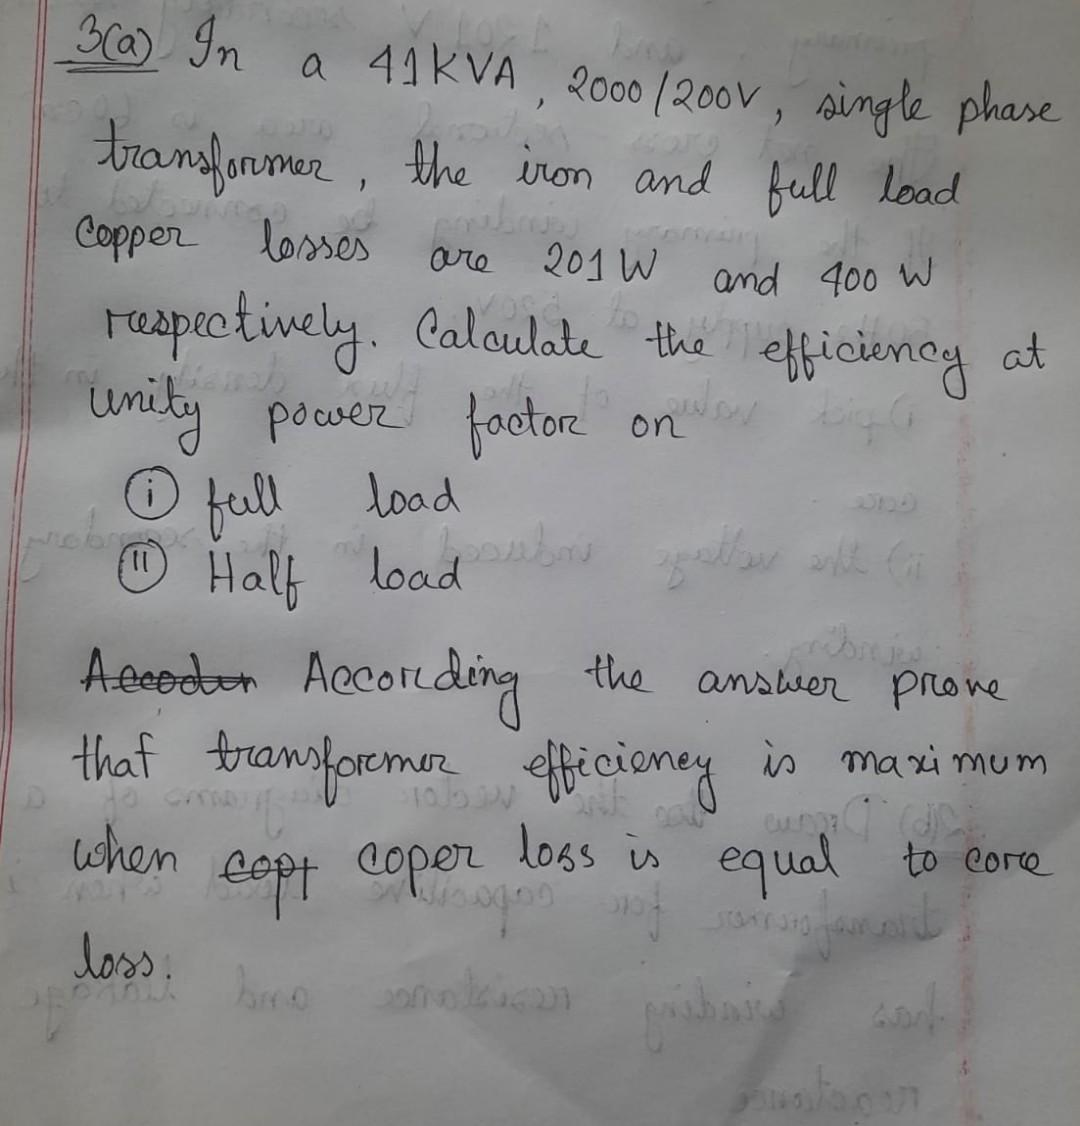 3(a) In a 41KVA, 2000/200V, single phase
transformer, the iron and full load
Copper losses are 201W and 400 W
respectively. Calculate the efficiency at
unity power factor on
(i) full load
(ii) Half load
According the answer prove
that transformer efficiency is maximum
when coper loss is equal to core
loss.